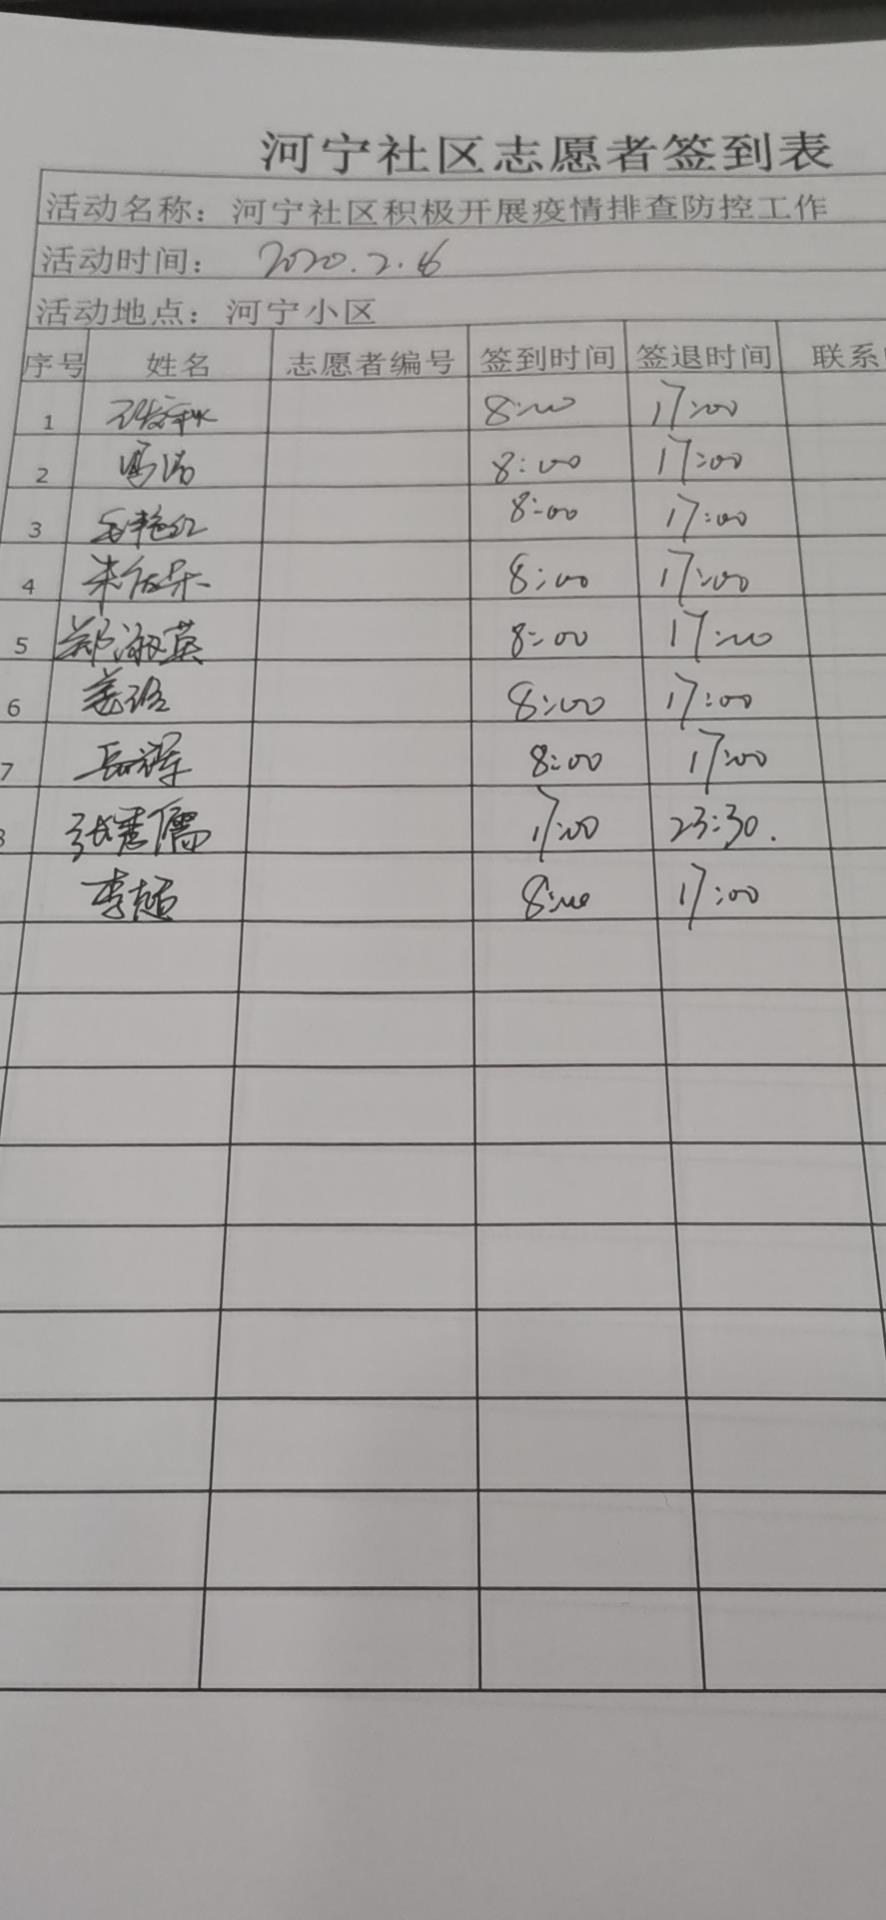 河宁社区志愿者签到表
活动名称：河宁社区积极开展疫情排查防控工作
活动时间： 2020.2.6
活动地点：河宁小区
序号 姓名 志愿者编号 签到时间 签退时间 联系
1 8:00 17:00
2 冯涛 8:00 17:00
3 8:00 17:00
4 8:00 17:00
5 郑淑英 8:00 17:00
6 8:00 17:00
7 8:00 17:00
17:00 23:30.
李超 8:00 17:00